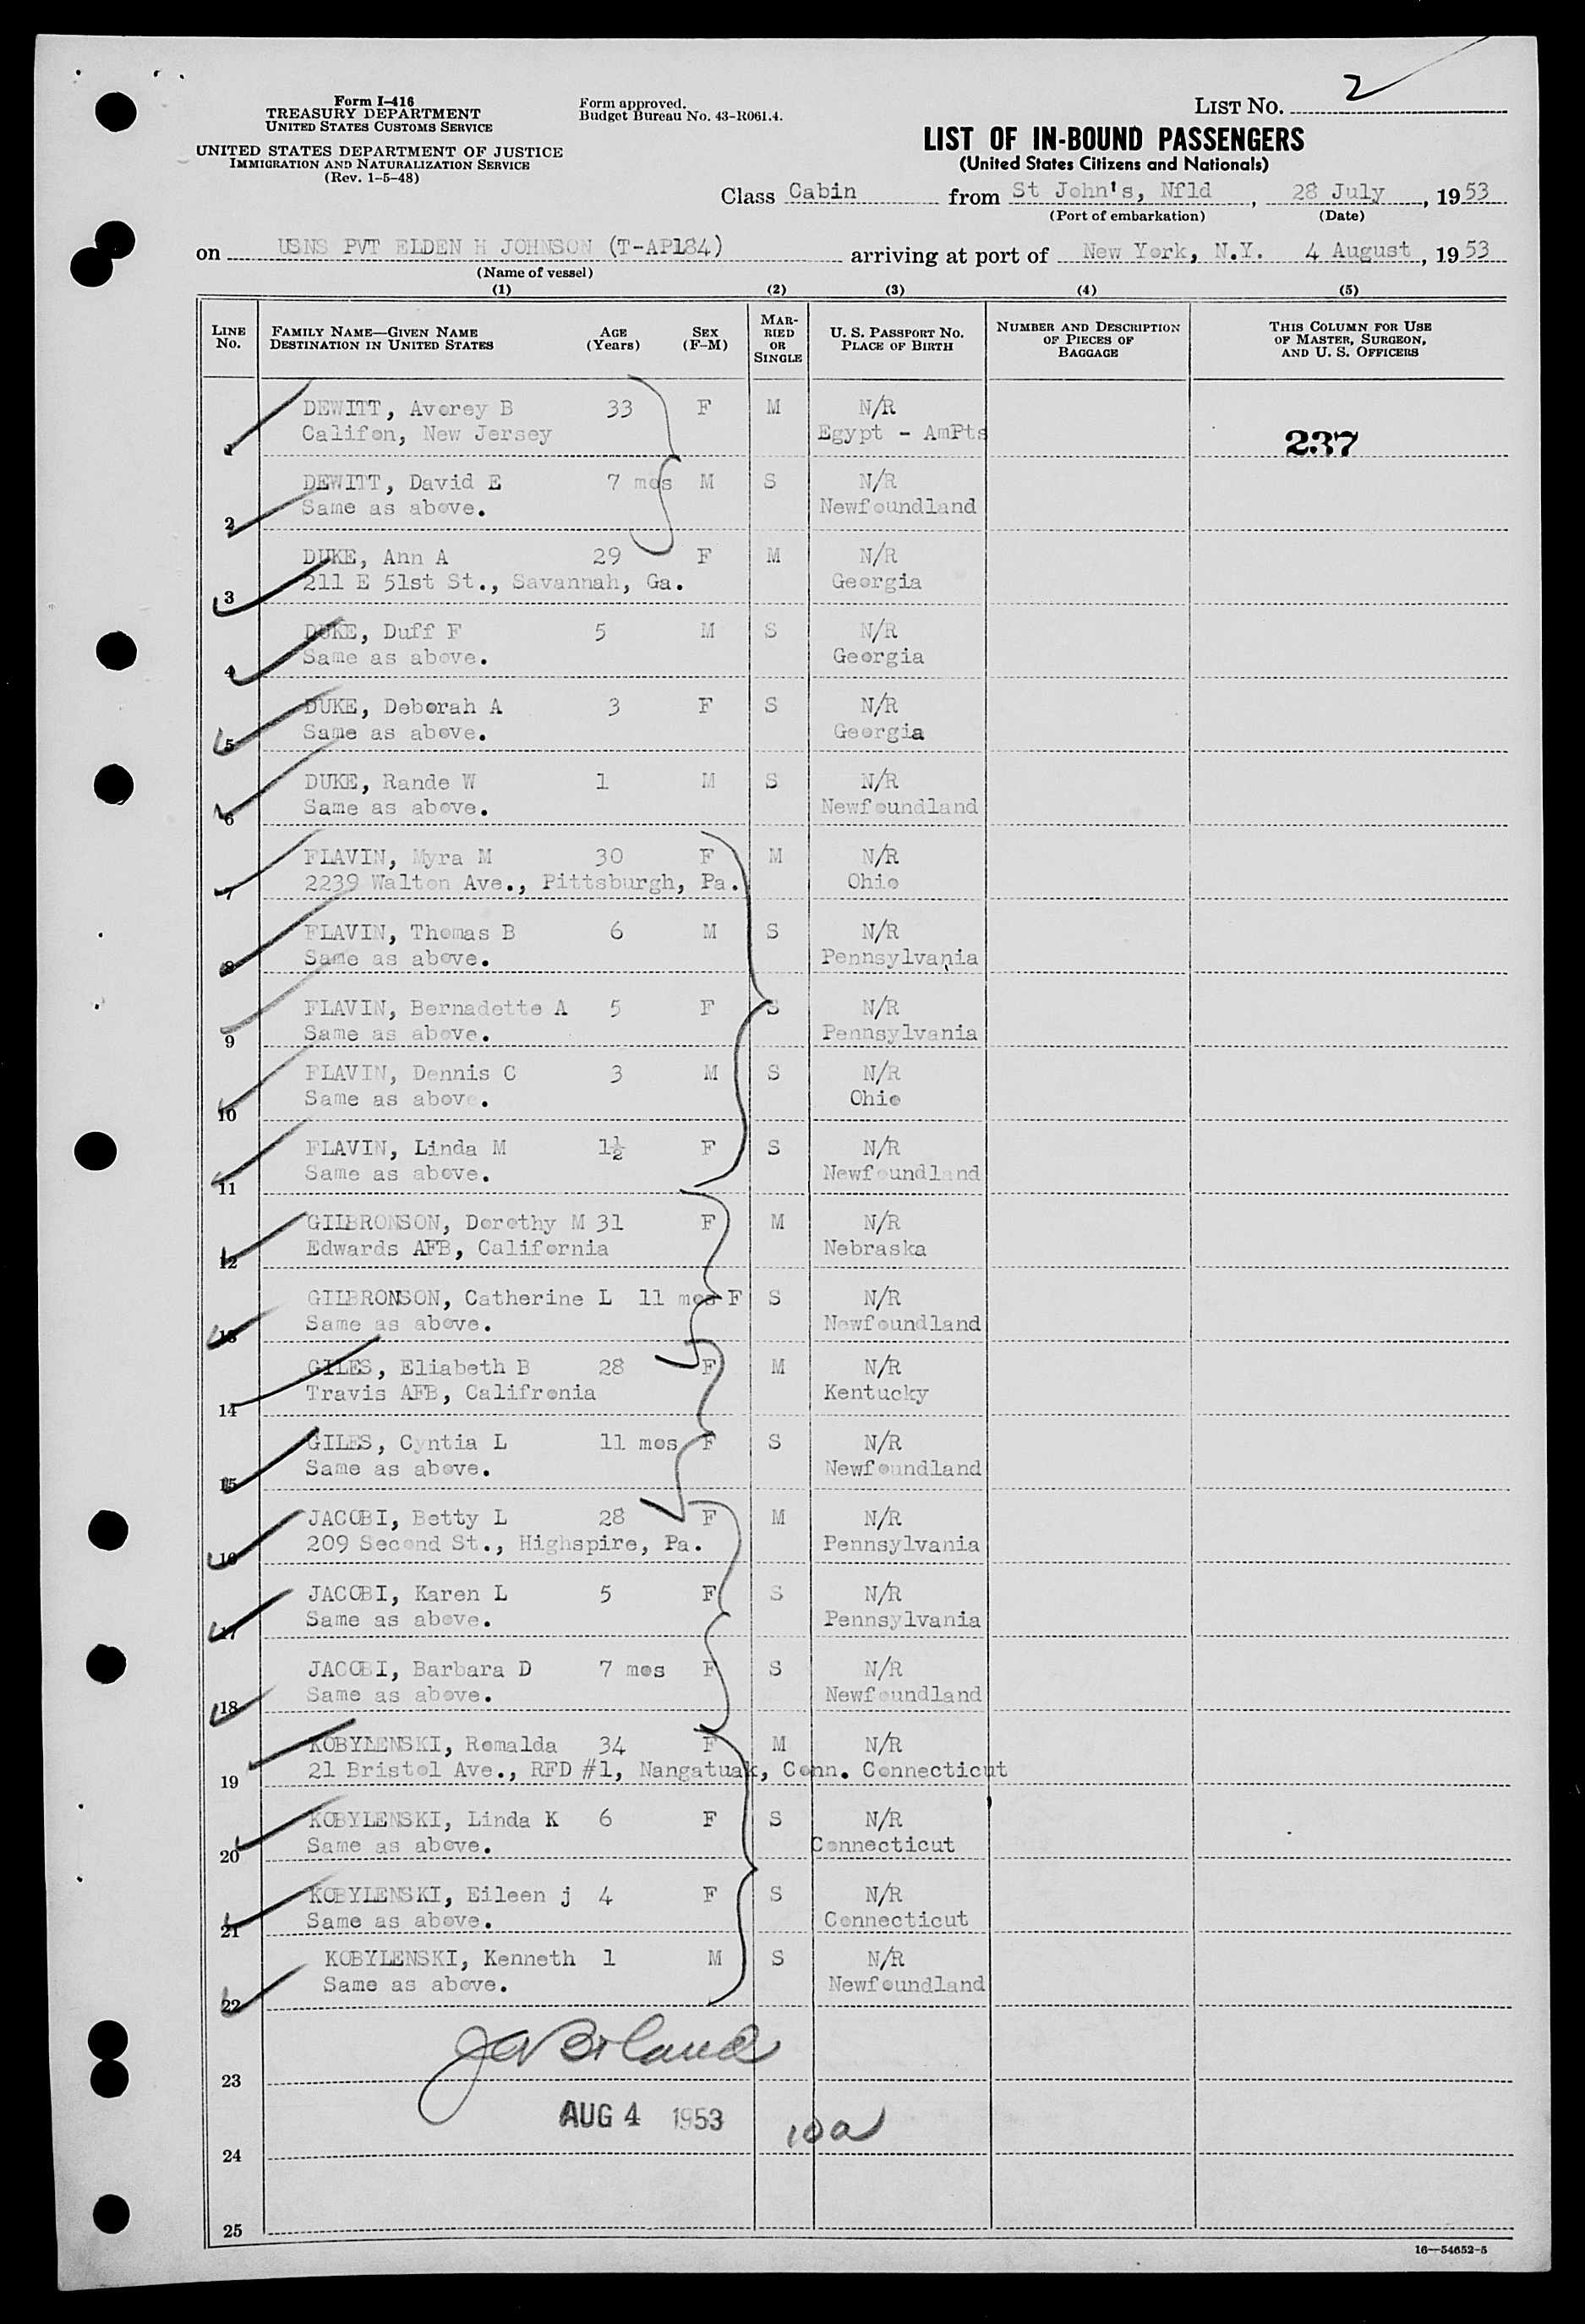 2
Form I-416
TREASURY DEPARTMENT
UNITED STATES CUSTOMS SERVICE
UNITED STATES DEPARTMENT OF JUSTICE
IMMIGRATION AND NATURALIZATION SERVICE
(Rev. 1-5-48)
Form approved.
Budget Bureau No. 43-R061.4.
LIST NO.
LIST OF IN-BOUND PASSENGERS
(United States Citizens and Nationals)
Class Cabin from St John's, Nfld, 28 July, 1953
(Port of embarkation) (Date)
on USNS PVT ELDEN H JOHNSON (T-AP184) arriving at port of New York, N.Y. 4 August, 1953
(Name of vessel)
(1) (2) (3) (4) (5)
LINE No. FAMILY NAME—GIVEN NAME DESTINATION IN UNITED STATES AGE (Years) SEX (F-M) MARRIED OR SINGLE U. S. PASSPORT NO. PLACE OF BIRTH NUMBER AND DESCRIPTION OF PIECES OF BAGGAGE THIS COLUMN FOR USE OF MASTER, SURGEON, AND U. S. OFFICERS
DEWITT, Averey B 33 F M N/R
1 Califon, New Jersey Egypt - AmPts 237
DEWITT, David E 7 mos M S N/R
2 Same as above. Newfoundland
DUKE, Ann A 29 F M N/R
3 211 E 51st St., Savannah, Ga. Georgia
DUKE, Duff F 5 M S N/R
4 Same as above. Georgia
DUKE, Deborah A 3 F S N/R
5 Same as above. Georgia
DUKE, Rande W 1 M S N/R
6 Same as above. Newfoundland
FLAVIN, Myra M 30 F M N/R
7 2239 Walton Ave., Pittsburgh, Pa. Ohio
FLAVIN, Thomas B 6 M S N/R
8 Same as above. Pennsylvania
FLAVIN, Bernadette A 5 F S N/R
9 Same as above. Pennsylvania
FLAVIN, Dennis C 3 M S N/R
10 Same as above. Ohio
FLAVIN, Linda M 1½ F S N/R
11 Same as above. Newfoundland
GILBRONSON, Dorothy M 31 F M N/R
12 Edwards AFB, California Nebraska
GILBRONSON, Catherine L 11 mos F S N/R
13 Same as above. Newfoundland
GILES, Eliabeth B 28 F M N/R
14 Travis AFB, Califronia Kentucky
GILES, Cyntia L 11 mos F S N/R
15 Same as above. Newfoundland
JACOBI, Betty L 28 F M N/R
16 209 Second St., Highspire, Pa. Pennsylvania
JACOBI, Karen L 5 F S N/R
17 Same as above. Pennsylvania
JACOBI, Barbara D 7 mos F S N/R
18 Same as above. Newfoundland
KOBYLENSKI, Romalda 34 F M N/R
19 21 Bristol Ave., RFD #1, Nangatuak, Conn. Connecticut
KOBYLENSKI, Linda K 6 F S N/R
20 Same as above. Connecticut
KOBYLENSKI, Eileen j 4 F S N/R
21 Same as above. Connecticut
KOBYLENSKI, Kenneth 1 M S N/R
22 Same as above. Newfoundland
23
AUG 4 1953 10a
24
25
16—54652-5